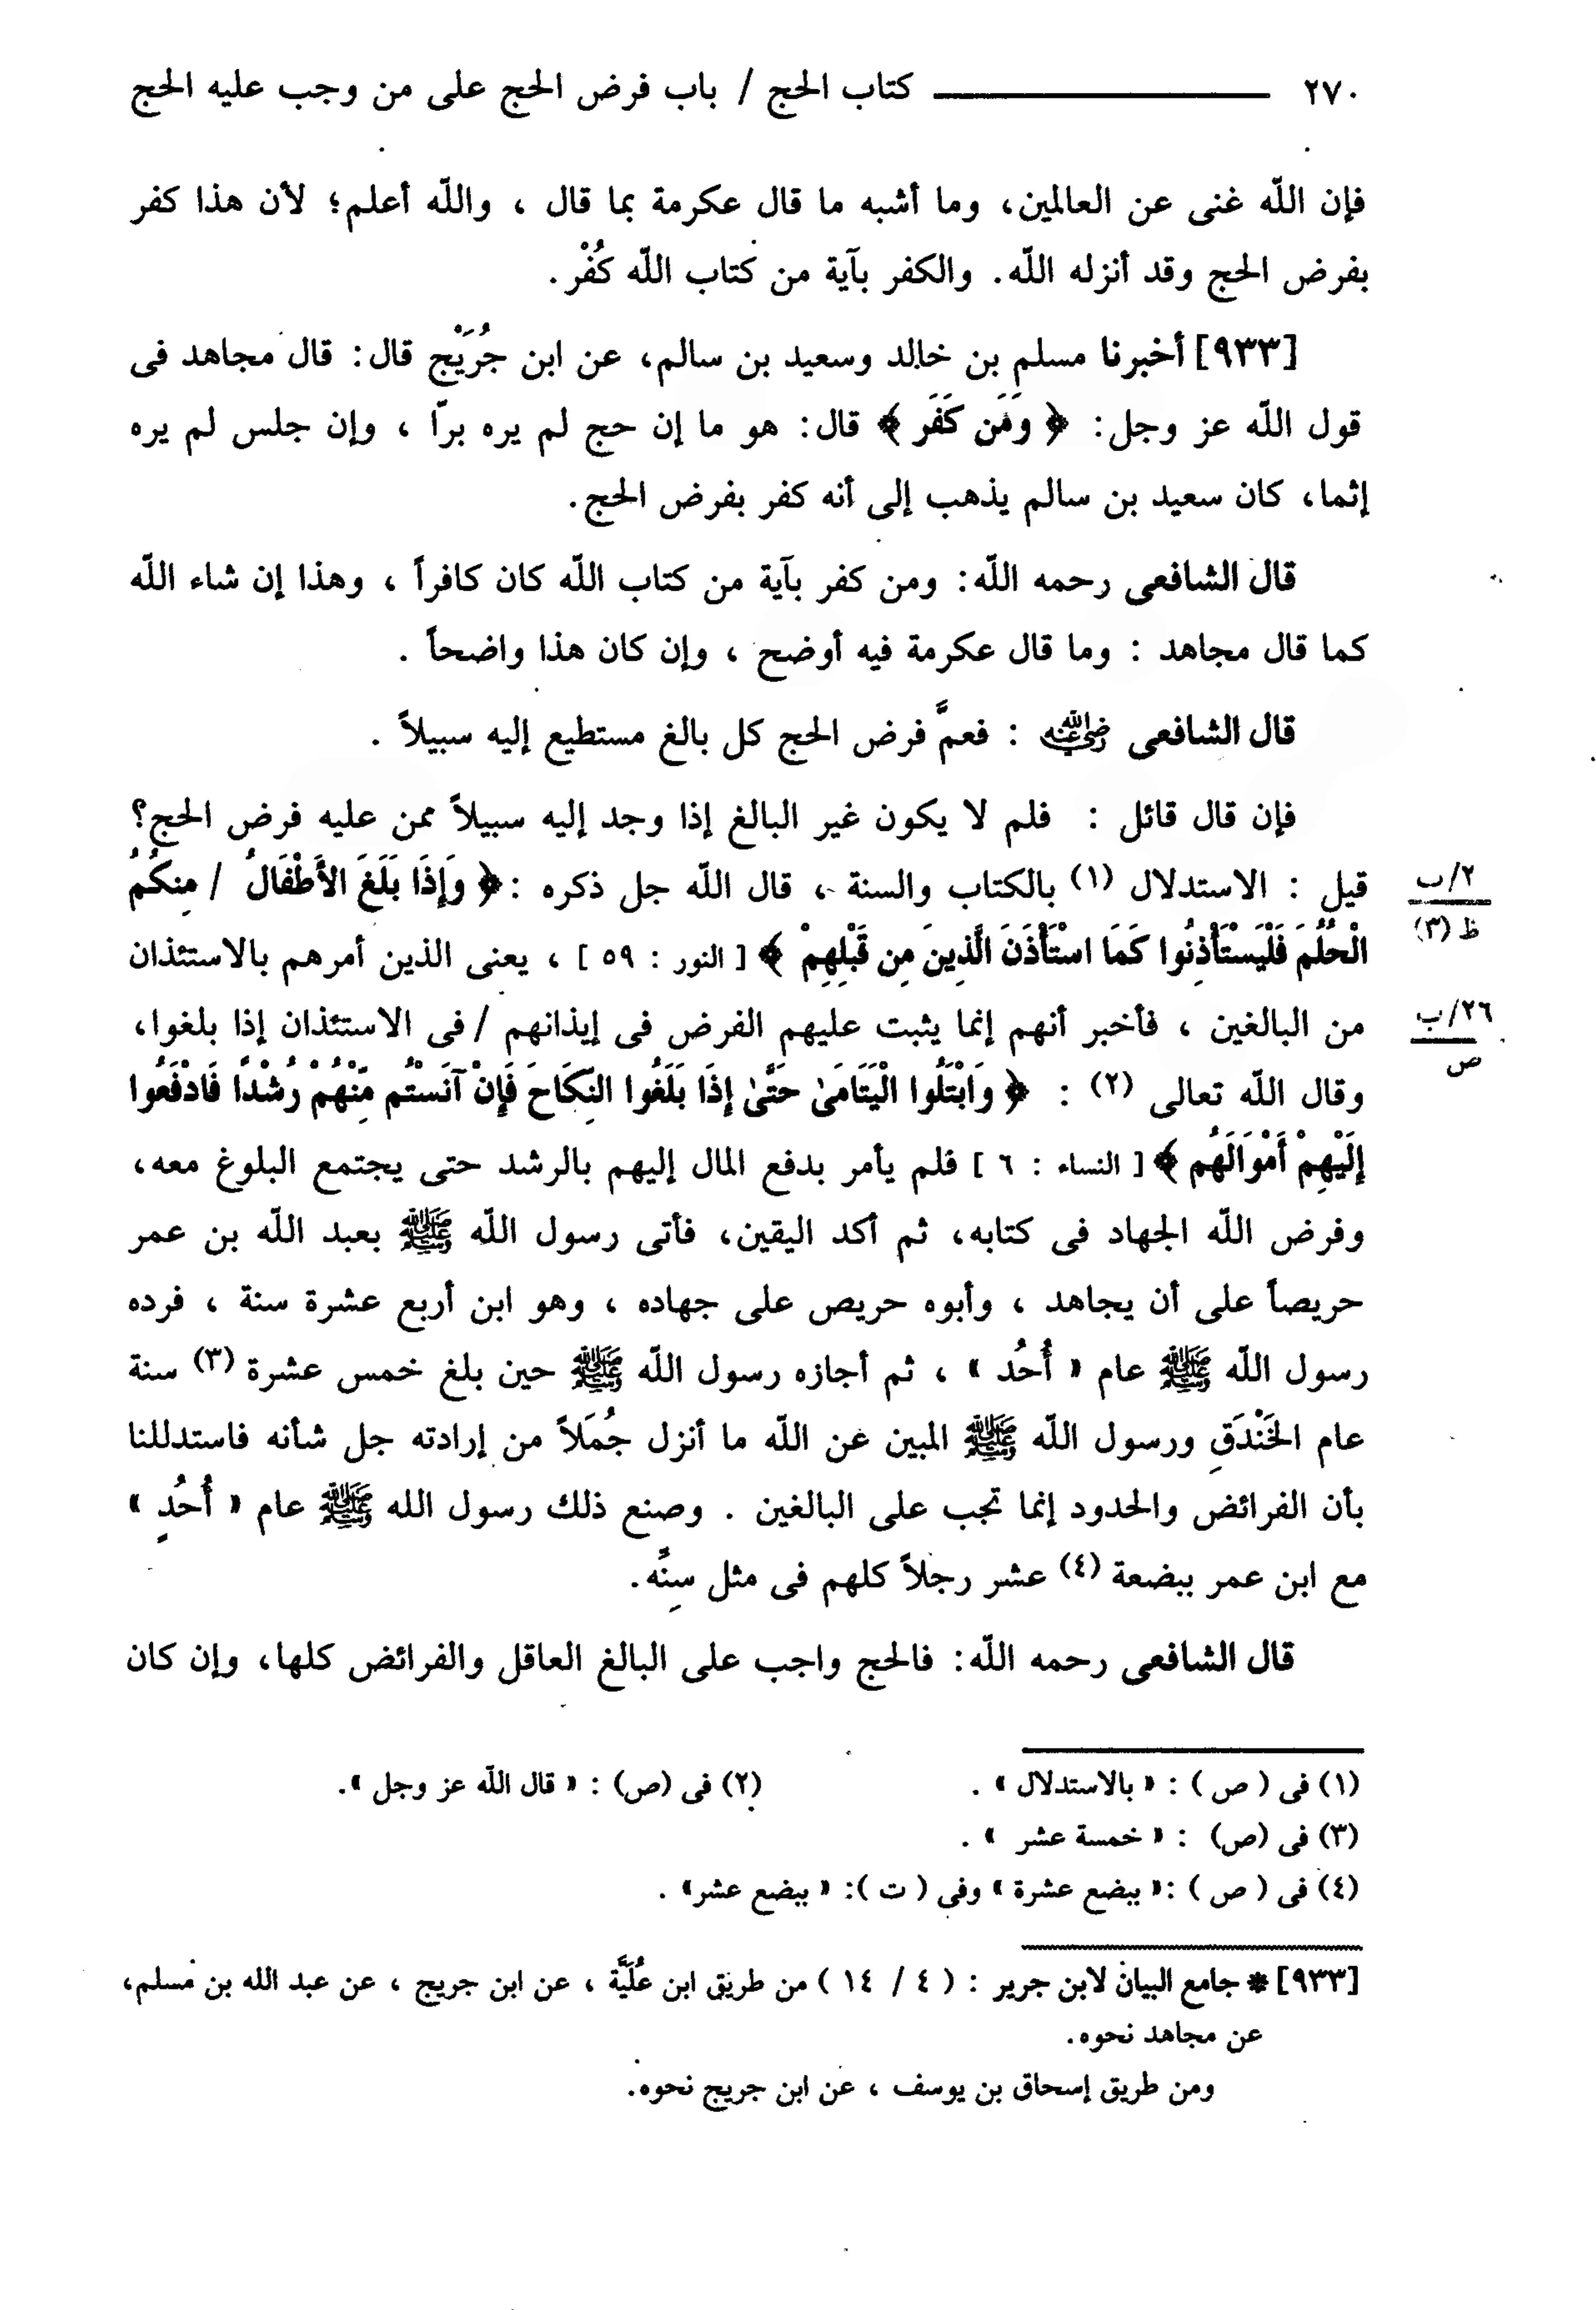 ٢٧٠ ــــــــــــــــــــ كتاب الحج / باب فرض الحج على من وجب عليه الحج
فإن اللّه غنى عن العالمين، وما أشبه ما قال عكرمة بما قال ، واللّه أعلم؛ لأن هذا كفر
بفرض الحج وقد أنزله اللّه. والكفر بآية من كتاب اللّه كُفْر.
[٩٣٣] أخبرنا مسلم بن خالد وسعيد بن سالم، عن ابن جُرَيْج قال: قال مجاهد فى
قول اللّه عز وجل: ﴿ وَمَن كَفَر ﴾ قال: هو ما إن حج لم يره برّا ، وإن جلس لم يره
إثما، كان سعيد بن سالم يذهب إلى أنه كفر بفرض الحج.
قال الشافعى رحمه اللّه: ومن كفر بآية من كتاب اللّه كان كافراً ، وهذا إن شاء اللّه
كما قال مجاهد : وما قال عكرمة فيه أوضح ، وإن كان هذا واضحاً .
قال الشافعى رضي الله عنه : فعمَّ فرض الحج كل بالغ مستطيع إليه سبيلاً .
فإن قال قائل : فلم لا يكون غير البالغ إذا وجد إليه سبيلاً ممن عليه فرض الحج؟
قيل : الاستدلال (١) بالكتاب والسنة ، قال اللّه جل ذكره : ﴿ وَإِذَا بَلَغَ الأَطْفَالُ / مِنكُمُ
٢/ب
ظ (٣)
الْحُلُمَ فَلْيَسْتَأْذِنُوا كَمَا اسْتَأْذَنَ الَّذِينَ مِن قَبْلِهِمْ ﴾ [ النور : ٥٩ ] ، يعنى الذين أمرهم بالاستئذان
من البالغين ، فأخبر أنهم إنما يثبت عليهم الفرض فى إيذانهم / فى الاستئذان إذا بلغوا،
٢٦/ب
ص
وقال اللّه تعالى (٢) : ﴿ وَابْتَلُوا الْيَتَامَىٰ حَتَّىٰ إِذَا بَلَغُوا النِّكَاحَ فَإِنْ آنَسْتُم مِّنْهُمْ رُشْدًا فَادْفَعُوا
إِلَيْهِمْ أَمْوَالَهُم ﴾ [ النساء : ٦ ] فلم يأمر بدفع المال إليهم بالرشد حتى يجتمع البلوغ معه،
وفرض اللّه الجهاد فى كتابه، ثم أكد اليقين، فأتى رسول اللّه ﷺ بعبد اللّه بن عمر
حريصاً على أن يجاهد ، وأبوه حريص على جهاده ، وهو ابن أربع عشرة سنة ، فرده
رسول اللّه ﷺ عام « أُحُد » ، ثم أجازه رسول اللّه ﷺ حين بلغ خمس عشرة (٣) سنة
عام الخَنْدَقِ ورسول اللّه ﷺ المبين عن اللّه ما أنزل جُمَلاً من إرادته جل شأنه فاستدللنا
بأن الفرائض والحدود إنما تجب على البالغين . وصنع ذلك رسول الله ﷺ عام « أُحُدٍ »
مع ابن عمر ببضعة (٤) عشر رجلاً كلهم فى مثل سِنِّه.
قال الشافعى رحمه اللّه: فالحج واجب على البالغ العاقل والفرائض كلها، وإن كان
(١) فى ( ص ) : « بالاستدلال » . (٢) فى (ص) : « قال اللّه عز وجل ».
(٣) فى (ص) : « خمسة عشر » .
(٤) فى ( ص ) :« ببضع عشرة » وفى ( ت ): « ببضع عشر» .
[٩٣٣] * جامع البيان لابن جرير : ( ٤ / ١٤ ) من طريق ابن عُلَيَّة ، عن ابن جريج ، عن عبد الله بن مسلم،
عن مجاهد نحوه.
ومن طريق إسحاق بن يوسف ، عن ابن جريج نحوه.